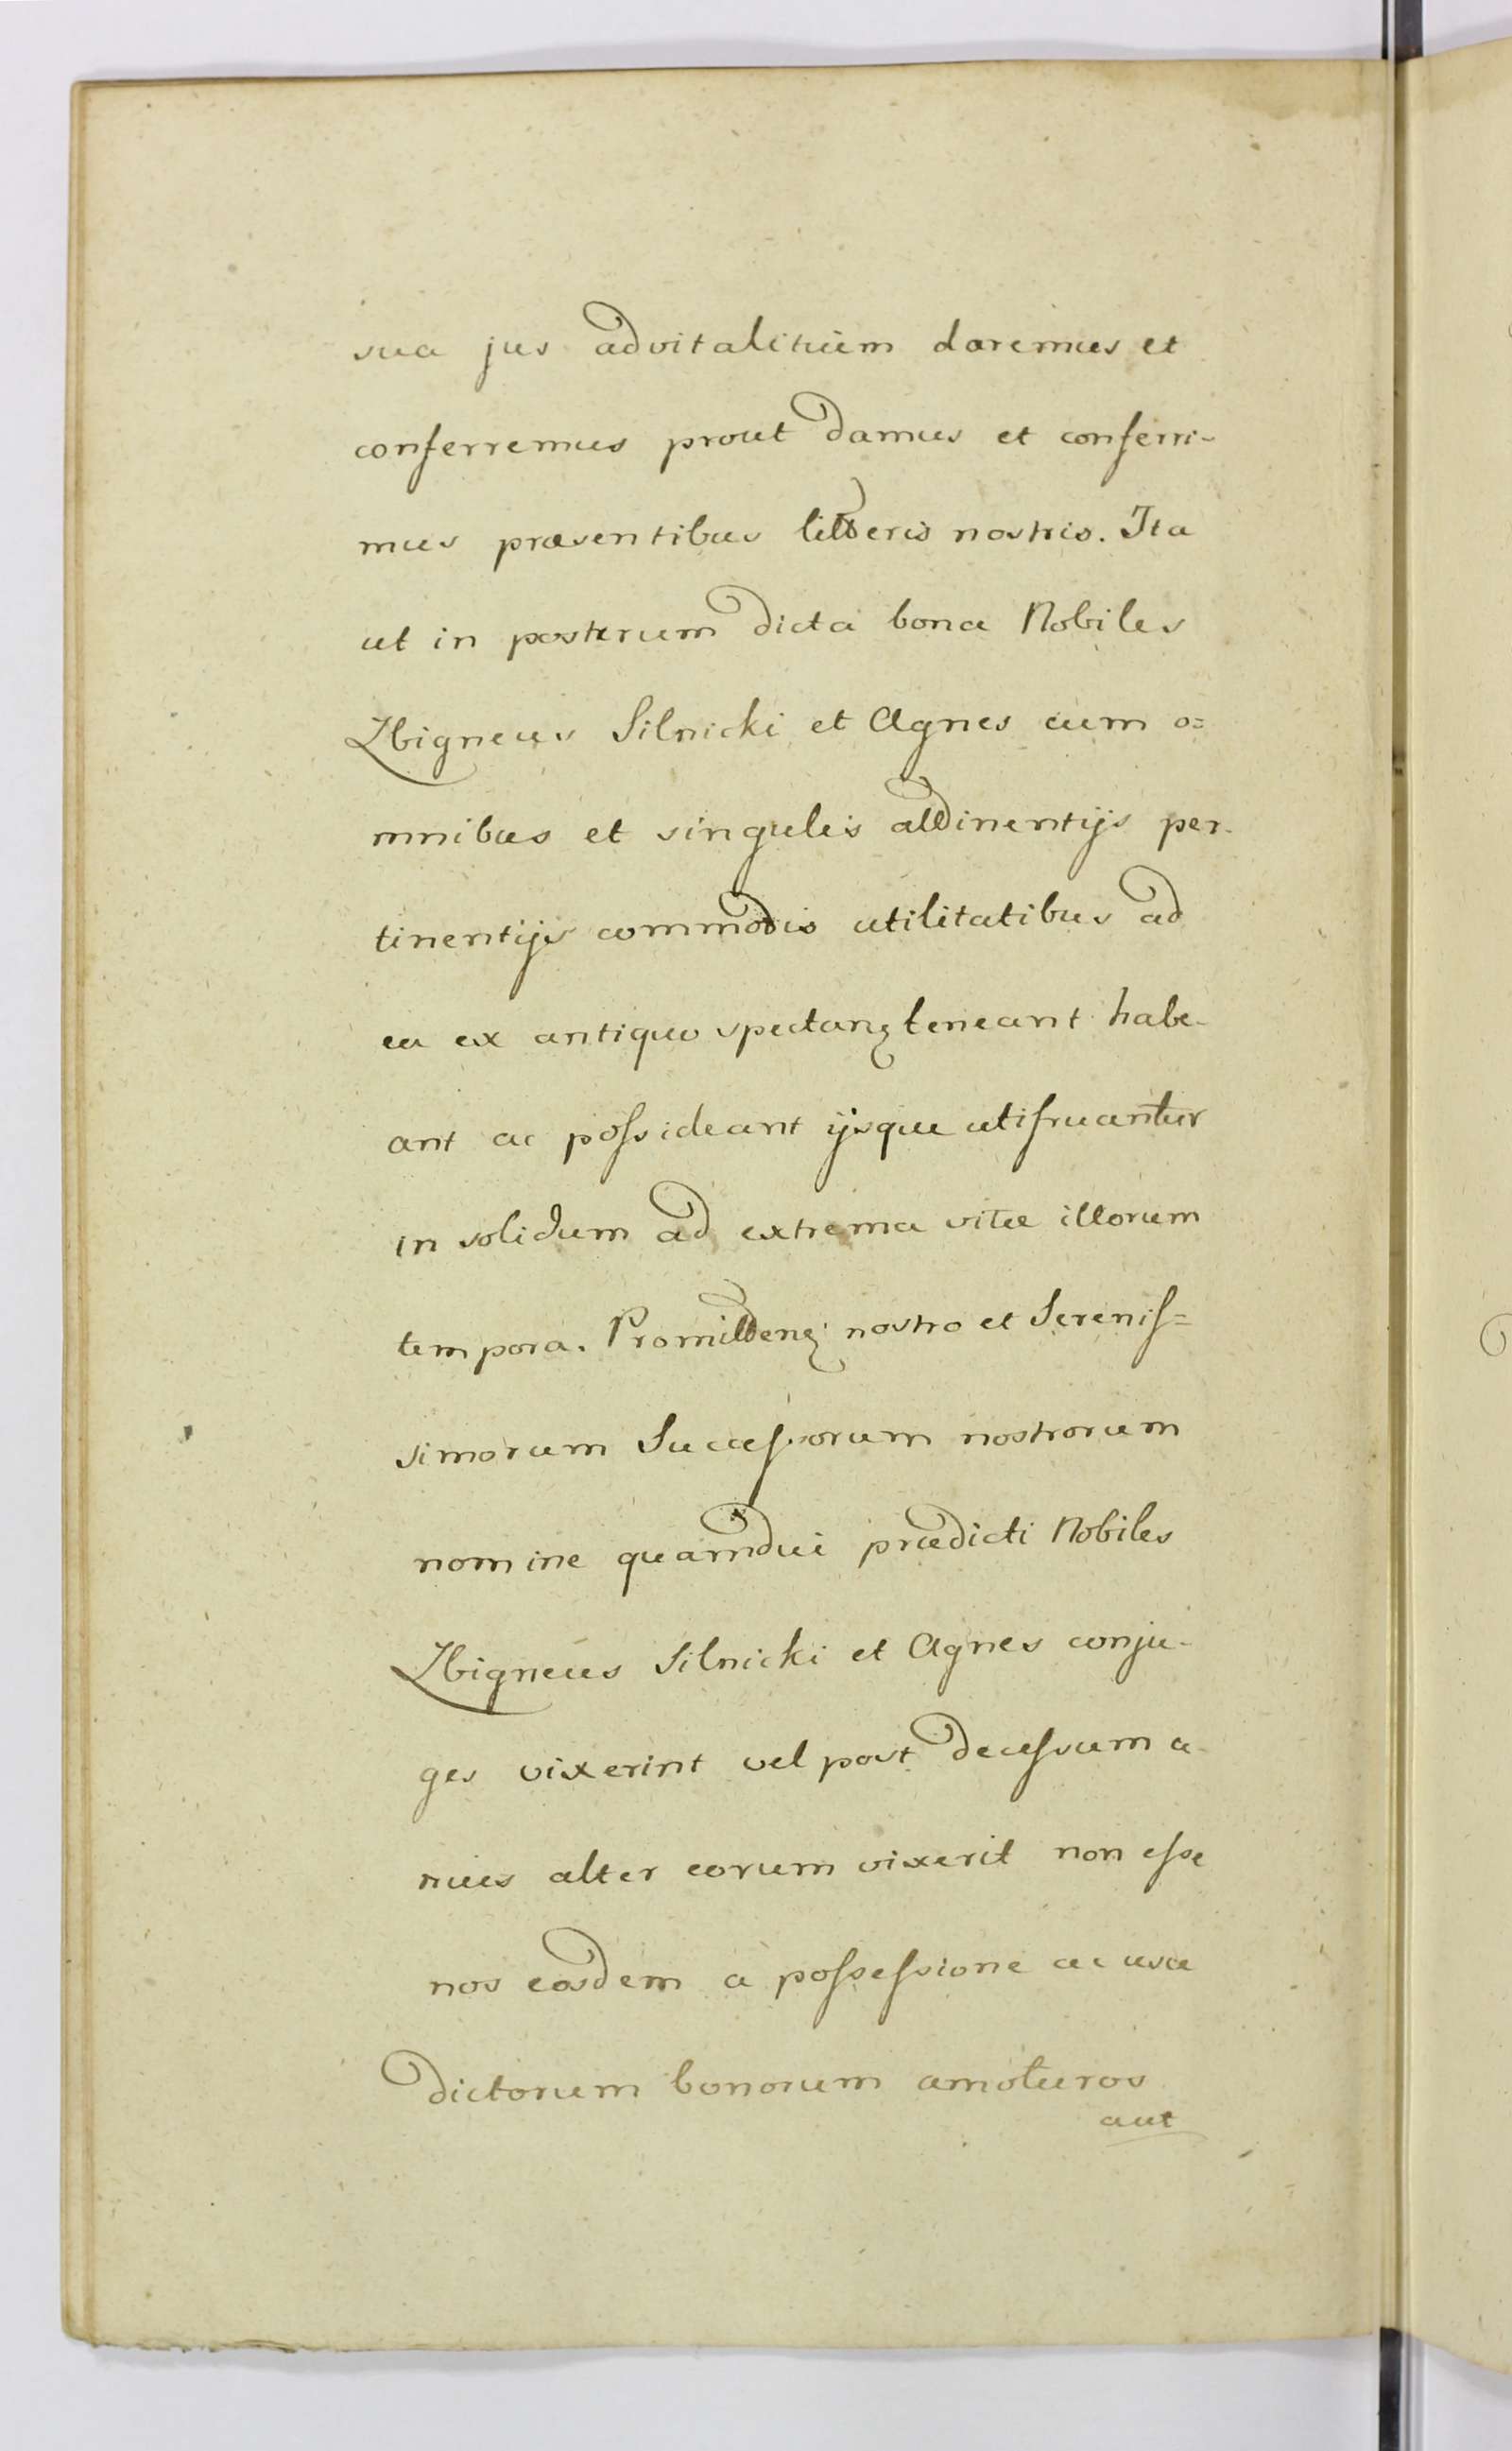 sua jus advitalitium daremus et
conferremus prout damus et conferri-
mus præsentibus litteris nostris. Ita
ut in posterum dicta bona Nobiles
Zbigneus Silnicki et Agnes cum o=
mnibus et singulis attinentijs per-
tinentijs commodis utilitatibus ad
ea ex antiquo spectanꝫ teneant habe-
ant ac possideant ijsque utifruantur
in solidum ad extrema vitæ illorum
tempora. Promittenꝫ nostro et Serenis=
simorum Successorum nostrorum
nomine quamdui prædicti Nobiles
Zbigneus Silnicki et Agnes conju-
ges vixerint vel post decessum u-
nius alter eorum vixerit non esse
nos eosdem a possessione ac usu
dictorum bonorum amoturos
aut